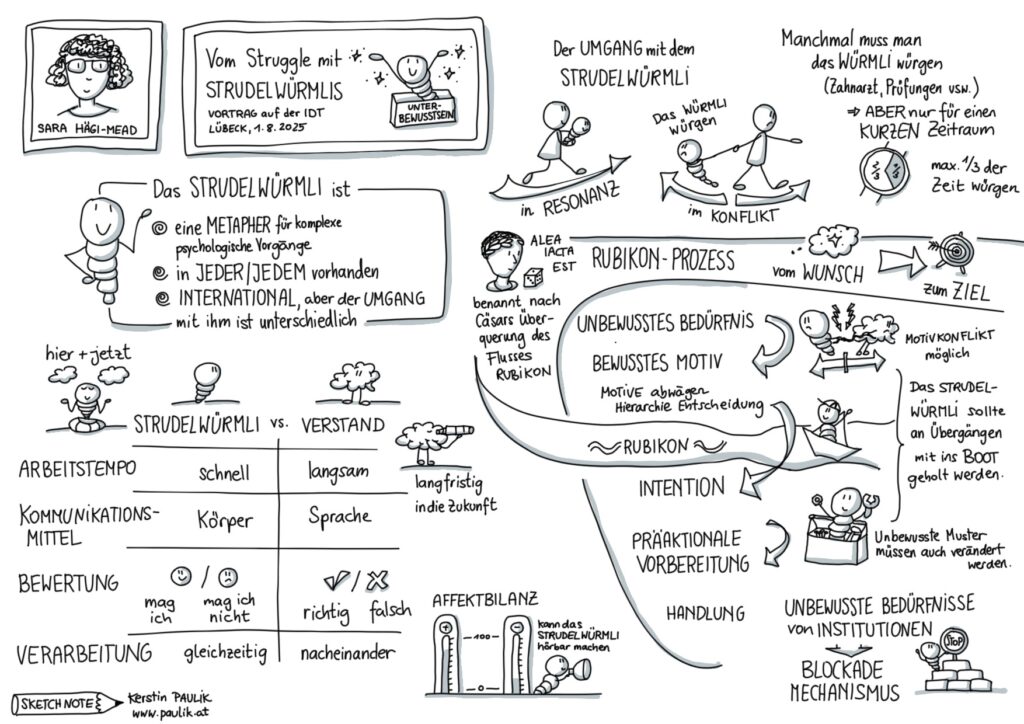 SARA HÄGI-MEAD
Vom Struggle mit
STRUDELWÜRMLIS
VORTRAG auf der IDT
LÜBECK, 1.8.2025
UNTER-
BEWUSSTSEIN
Das STRUDELWÜRMLI ist
eine METAPHER für komplexe
psychologische Vorgänge
in JEDER/JEDEM vorhanden
INTERNATIONAL, aber der UMGANG
mit ihm ist unterschiedlich
Der UMGANG mit dem
STRUDELWÜRMLI
in RESONANZ
Das WÜRMLI
würgen
im KONFLIKT
Manchmal muss man
das WÜRMLI würgen
(Zahnarzt, Prüfungen usw.)
⇒ ABER nur für einen
KURZEN Zeitraum
max. 1/3 der
Zeit würgen
hier + jetzt
STRUDELWÜRMLI vs. VERSTAND
langfristig
in die Zukunft
ARBEITSTEMPO schnell langsam
KOMMUNIKATIONS-
MITTEL Körper Sprache
BEWERTUNG
mag
ich
/
mag ich
nicht
richtig / falsch
VERARBEITUNG gleichzeitig nacheinander
ALEA
IACTA
EST
benannt nach
Cäsars Über-
querung des
Flusses
RUBIKON
RUBIKON-PROZESS
vom WUNSCH
zum ZIEL
UNBEWUSSTES BEDÜRFNIS
BEWUSSTES MOTIV
MOTIVKONFLIKT
möglich
MOTIVE abwägen
Hierarchie Entscheidung
RUBIKON
INTENTION
PRÄAKTIONALE
VORBEREITUNG
HANDLUNG
Das STRUDEL-
WÜRMLI sollte
an Übergängen
mit ins BOOT
geholt werden.
Unbewusste Muster
müssen auch verändert
werden.
AFFEKTBILANZ
+
-
100
0
kann das
STRUDELWÜRMLI
hörbar machen
UNBEWUSSTE BEDÜRFNISSE
von INSTITUTIONEN
BLOCKADE
MECHANISMUS
STOP
SKETCHNOTE
Kerstin PAULIK
www.paulik.at